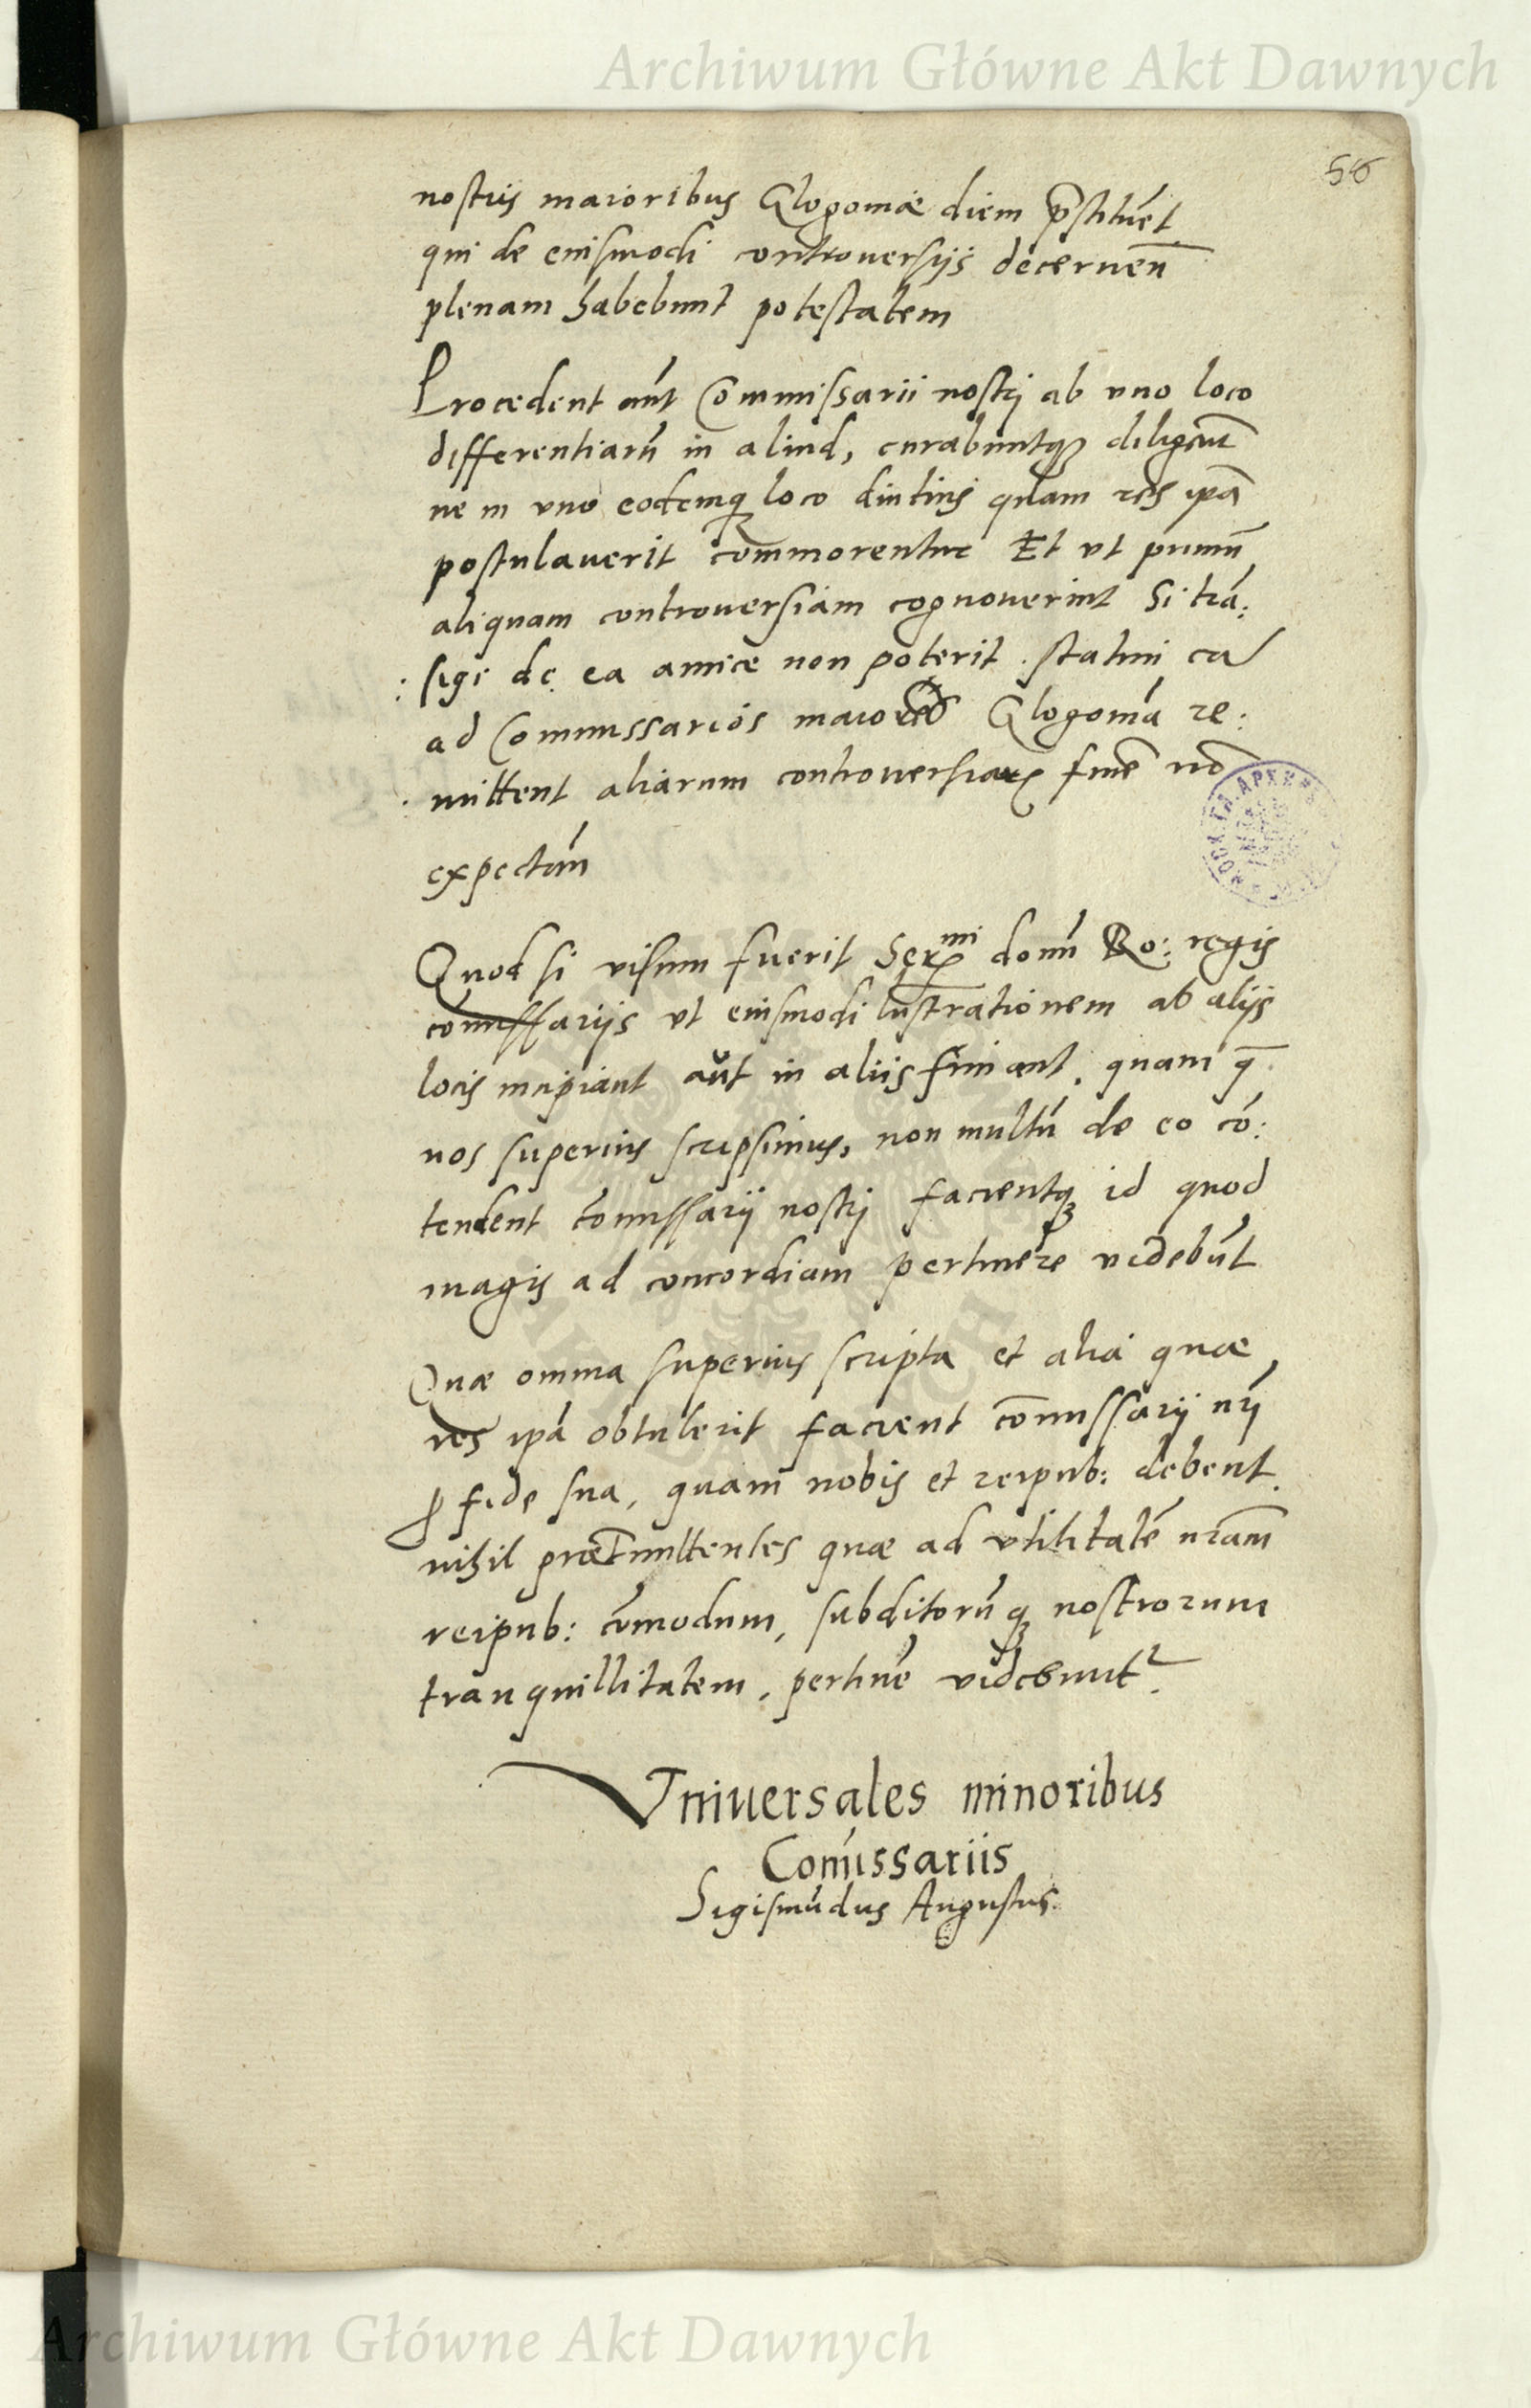 Archiwum Główne Akt Dawnych
56
nostris maioribus Glogoviæ diem p̄stituēt
qui de eiusmodi controversijs decernen̄
plenam habebunt potestatem
Procedent aūt Commissarii nostrj ab uno loco
differentiarū in aliud, curabuntq₃ diligent̄
ne in uno eodemq₃ loco diutius quam res ip̄a
postulaverit commorentur Et ut primū
aliquam controversiam cognoverint Si trā:
: sigi de ea amice non poterit. statim ea
ad Commissarios maiores Glogoviā re:
: mittent aliarum controversiarꝝ finē nō
expectan̄
Quod si visum fuerit Serᵐⁱ domī Ro: regis
comissariis ut eiusmodi lustrationem ab alijs
locis incipiant aut in aliis finiant, quam q̄
nos superius scripsimus, non multū de eo cō:
tendent cōmissarij nostrj facientq₃ id quod
magis ad concordiam pertinere videbūt
Quæ omnia superius scripta et alia quæ
res ip̄a obtulerit facient cōmissarij nr̄j
ꝓ fide sua, quam nobis et reipub: debent.
nihil prætermittentes quæ ad utilitatē nr̄am
reipub: cōmodum, subditorūq₃ nostrorum
tranquillitatem, pertinē videbunt²
Universales minoribus
Com̄issariis
Sigismūdus Augustus
Archiwum Główne Akt Dawnych